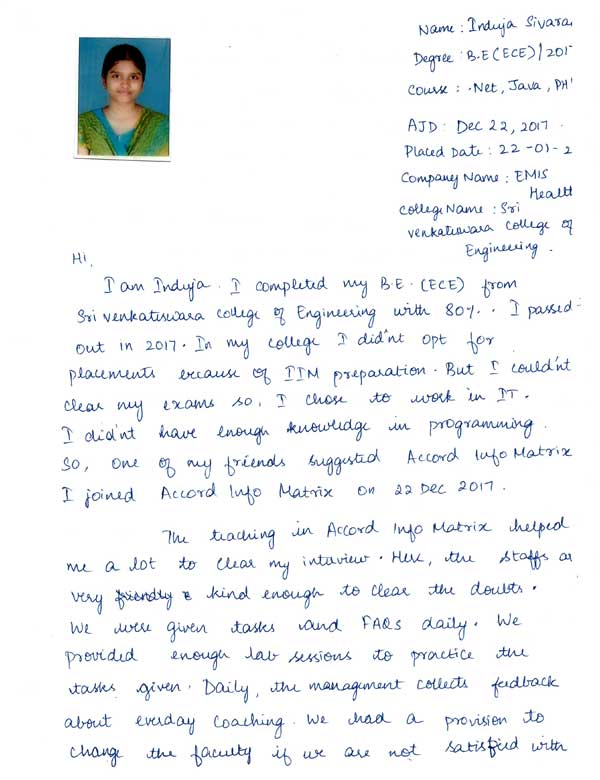 Name : Induja Sivara
Degree : B.E (ECE) / 201
Course : .Net, Java, PH
AJD : Dec 22, 2017 .
Placed Date : 22-01-2
Company Name : EMIS
Health
College Name : Sri
Venkateswara College of
Engineering .
Hi,
I am Induja . I completed my B.E. (ECE) from
Sri Venkateswara College of Engineering with 80% . I passed-
out in 2017. In my college I did'nt opt for
placements because of IIM preparation. But I could'nt
clear my exams so, I chose to work in IT.
I did'nt have enough knowledge in programming.
So, one of my friends suggested Accord Info Matrix
I joined Accord Info Matrix on 22 Dec 2017.
The teaching in Accord Info Matrix helped
me a lot to clear my interview. Here, the staffs ar
very kind enough to clear the doubts.
We were given tasks and FAQs daily. We
provided enough lab sessions to practice the
tasks given. Daily, the management collects feedback
about everday coaching. We had a provision to
change the faculty if we are not satisfied with